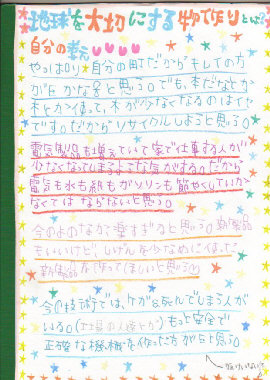 地球を大切にする物作りとは?
自分の考え
やっぱり自分の町だからモしイの方
がたかなあと思う。でも、木だなとか
木とか使って、木が少なくなるのはイヤ
です。だからリサイクルしようと思う。
電気製品も増えていて家で仕事する人が
少なくなってしまうような気がする。だから
電気も水も紙もガソリンも節やくしていか
なくてはならないと思う。
今のよのなかで愛すぎると思う。新製品
もいいけど、しげんを少なめにくほった
新製品を作ってほしいと思う
今の技術では、ケガ&死んでしまう人が
いる。(工場の人達とか)もっと安全で
正確な機械を作った方がいと思う。